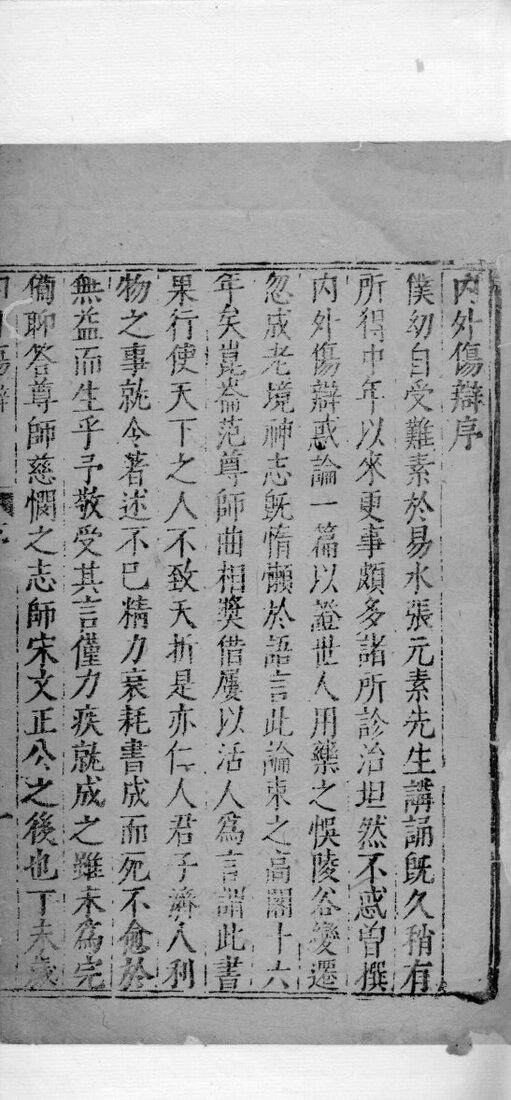 内外傷辯序
僕幼自受難素於易水張元素先生講誦旣久稍有
所得中年以來更事頗多諸所診治坦然不惑曾撰
内外傷辯惑論一篇以證世人用藥之悞陵谷變遷
忽成老境神志旣惰懶於語言此論束之高閣十六
年矣崑崙范尊師曲相奬借屢以活人爲言謂此書
果行使天下之人不致夭折是亦仁人君子濟人利
物之事就令著述不已精力衰耗書成而死不愈於
無益而生乎予敬受其言僅力疾就成之雖未爲完
備聊答尊師慈憫之志師宋文正公之後也丁未歲